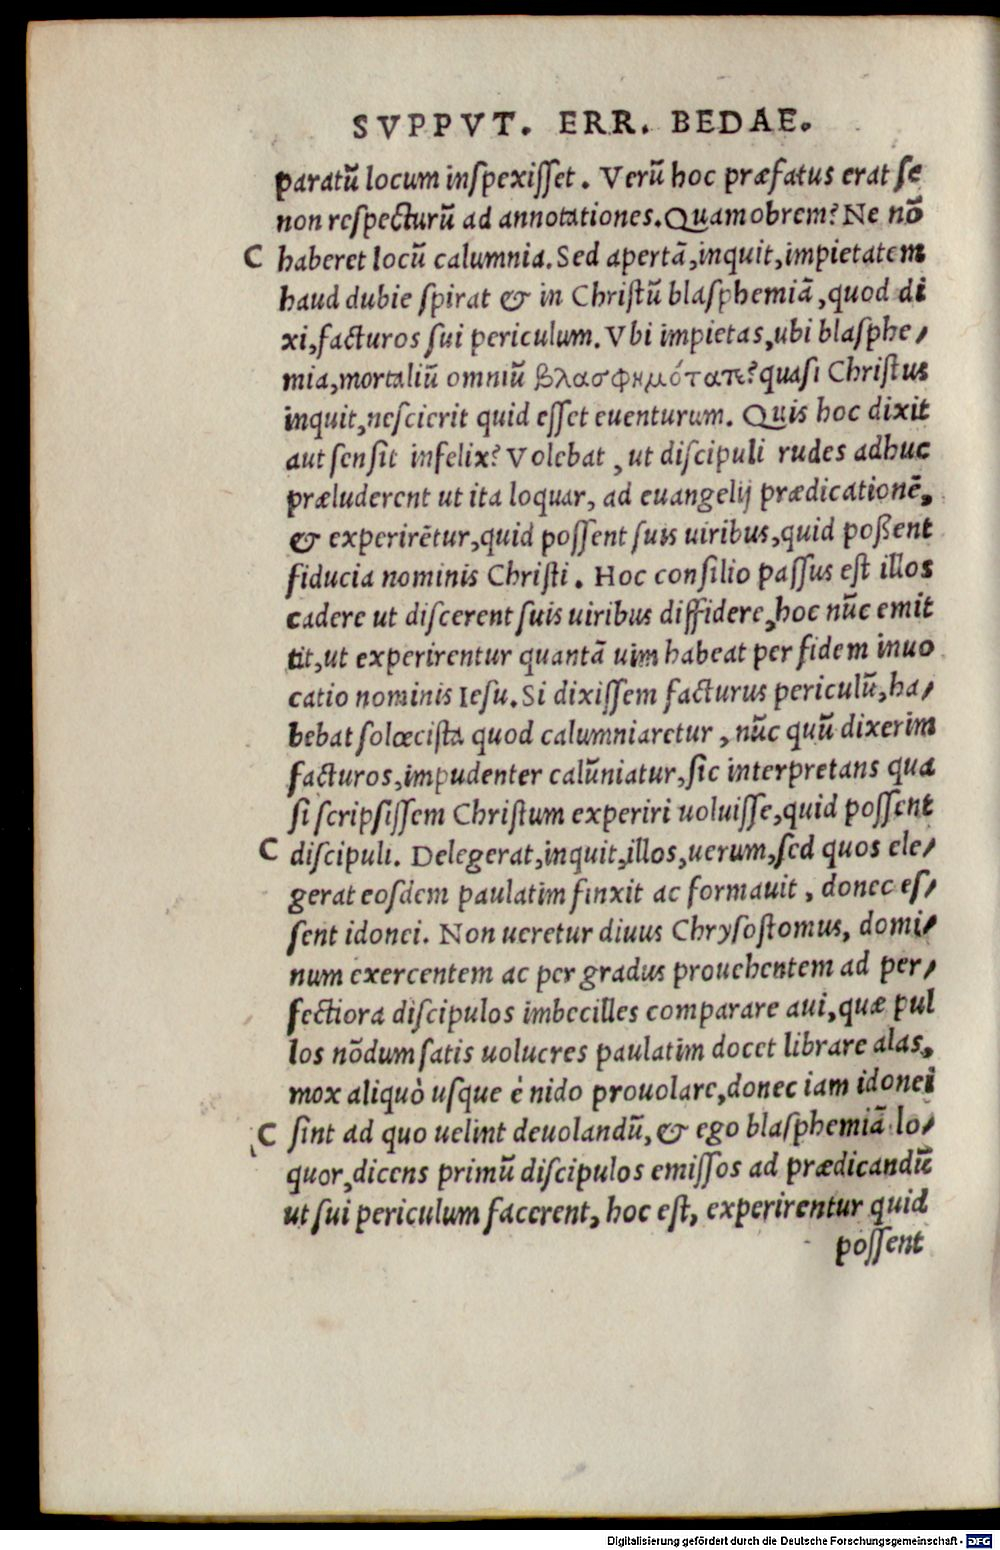 SVPPVT. ERR. BEDAE.
paratũ locum inspexisset. Verũ hoc præfatus erat se
non respecturũ ad annotationes. Quamobrem? Ne nõ
C haberet locũ calumnia. Sed apertã, inquit, impietatem
haud dubie spirat & in Christũ blasphemiã, quod di
xi, facturos sui periculum. Vbi impietas, ubi blasphe/
mia, mortaliũ omniũ βλασφημότατε? quasi Christus
inquit, nescierit quid esset euenturum. Quis hoc dixit
aut sensit infelix? Volebat, ut discipuli rudes adhuc
præluderent ut ita loquar, ad euangelij prædicationẽ,
& experirẽtur, quid possent suis uiribus, quid poßent
fiducia nominis Christi. Hoc consilio passus est illos
cadere ut discerent suis uiribus diffidere, hoc nũc emit
tit, ut experirentur quantã uim habeat per fidem inuo
catio nominis Iesu. Si dixissem facturus periculũ, ha/
bebat solœcista quod calumniaretur, nũc quũ dixerim
facturos, impudenter calũniatur, sic interpretans qua
si scripsissem Christum experiri uoluisse, quid possent
C discipuli. Delegerat, inquit, illos, uerum, sed quos ele/
gerat eosdem paulatim finxit ac formauit, donec es/
sent idonei. Non ueretur diuus Chrysostomus, domi/
num exercentem ac per gradus prouehentem ad per/
fectiora discipulos imbecilles comparare aui, quæ pul
los nõdum satis uolucres paulatim docet librare alas,
mox aliquò usque è nido prouolare, donec iam idonei
C sint ad quo uelint deuolandũ, & ego blasphemiã lo/
quor, dicens primũ discipulos emissos ad prædicandũ
ut sui periculum facerent, hoc est, experirentur quid
possent
Digitalisierung gefördert durch die Deutsche Forschungsgemeinschaft - DFG